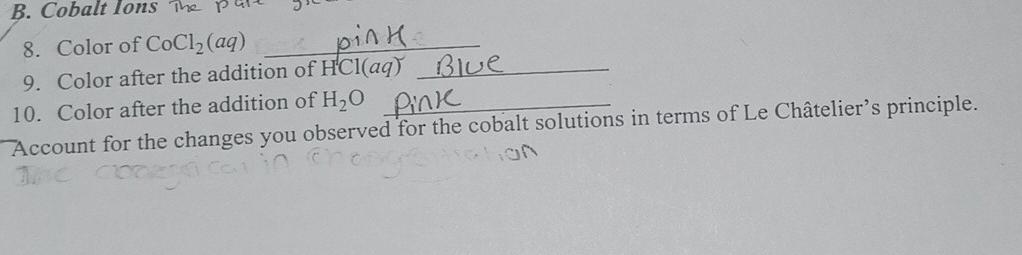 B. Cobalt Ions The
8. Color of CoCl₂(aq) pink
9. Color after the addition of HCl(aq) Blue
10. Color after the addition of H₂O Pink
Account for the changes you observed for the cobalt solutions in terms of Le Châtelier's principle.
in